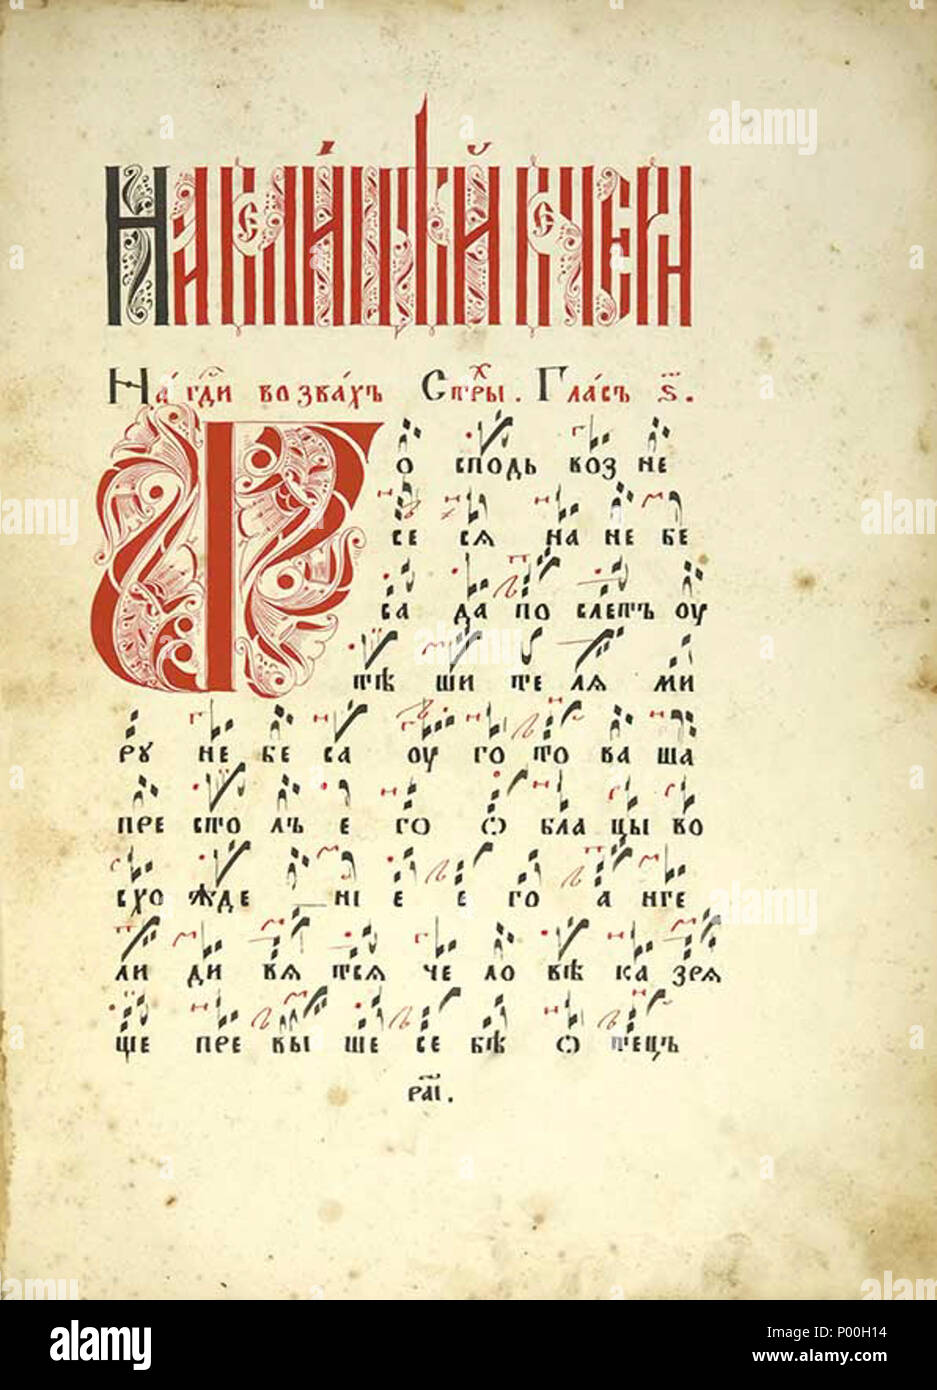 На велицѣй вечерни
На́ гд҃и возва́хъ Стр҃ы . Гла́съ ѕ҃ .
Г о сподь воз не
се ся на не бе
са да по слетъ оу
тѣ ши те ля ми
ру не бе са оу го то ва ша
пре сто лъ е го ѡ бла цы во
схо жде _ ні е е го а нге
ли ди вя тся че ло вѣ ка зря
ще пре вы ше се бѣ ѡ тецъ
alamy
Image ID: P00H14
www.alamy.com